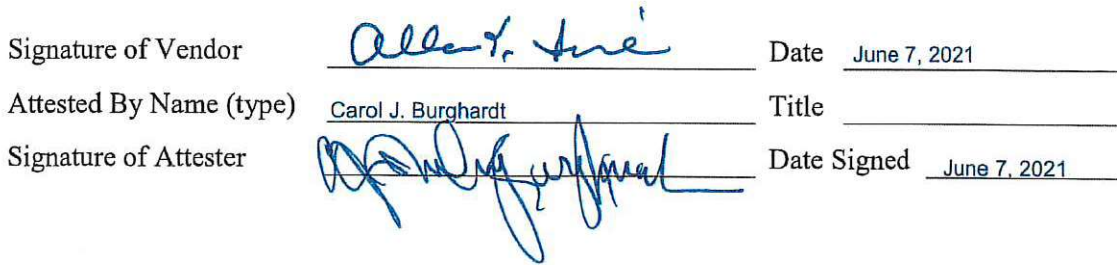 Signature of Vendor Date June 7, 2021
Attested By Name (type) Carol J. Burghardt Title
Signature of Attester Date Signed June 7, 2021